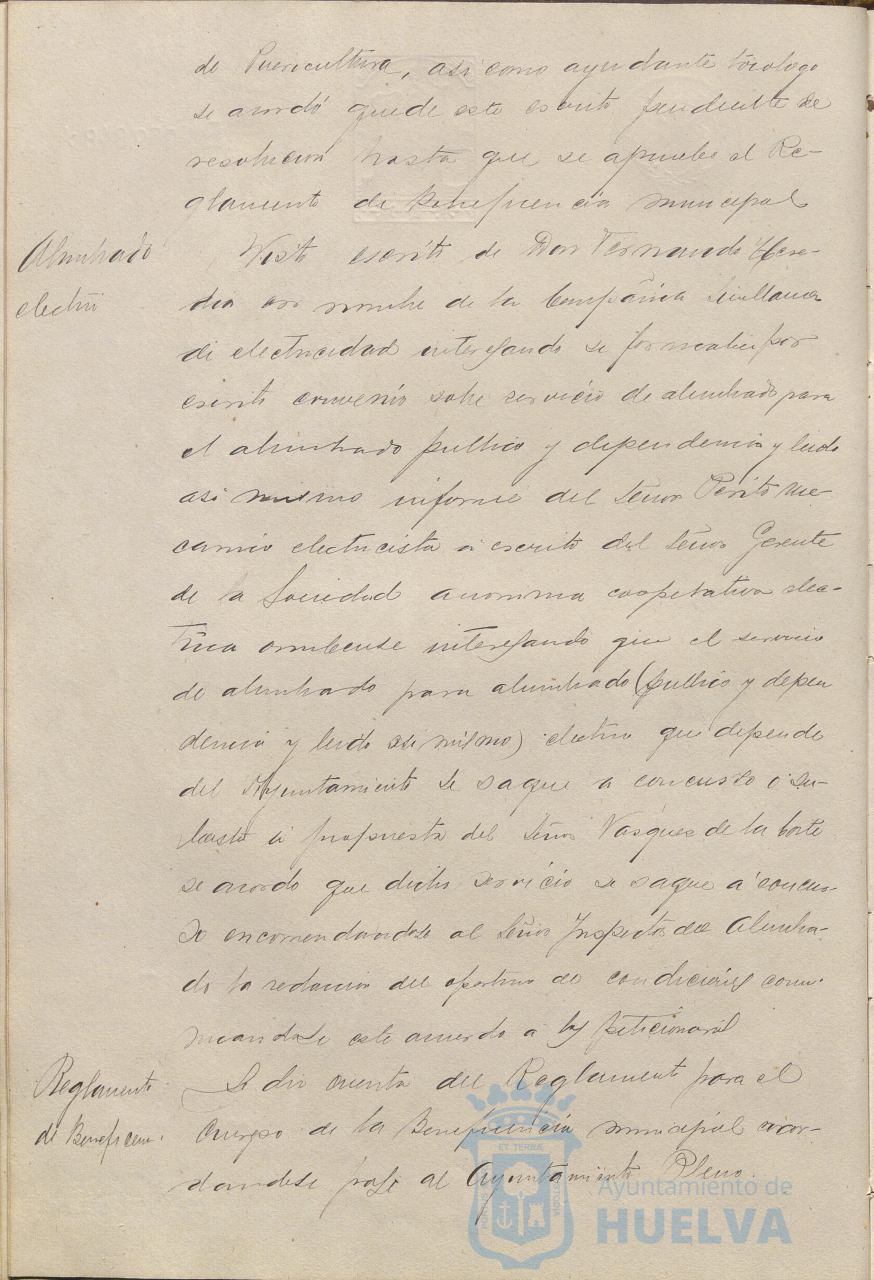 de Puericultura, asi como ayudante tocologo
se acordó quede este escrito pendiente de
resolucion hasta que se apruebe el Re-
glamento de Beneficencia municipal
Alumbrado
electri
Visto escrito de Don Fernando Here-
dia en nombre de la Compañia Sevillana
de electricidad interesando se formalice por
escrito convenio sobre servicio de alumbrado para
el alumbrado publico y dependencia y leido
asi mismo informe del Señor Perito me-
canico electricista a escrito del Señor Gerente
de la Sociedad anonima cooperativa elec-
trica onubense interesando que el servicio
de alumbrado para alumbrado (publico y depen
dencia y leido asi mismo) electrico que depende
del Ayuntamiento se saque a concurso o su-
basta a propuesta del Señor Vasques de la Corte
se acordo que dicho servicio se saque a concur-
so encomendandose al Señor Inspector del Alumbra-
do la redaccion del oportuno de condiciones comu-
nicandose este acuerdo a los peticionarios
Reglamento
de Beneficen.
Se dio cuenta del Reglamento para el
cuerpo de la Beneficencia municipal acor-
dandose pase al Ayuntamiento Pleno.
Ayuntamiento de
HUELVA